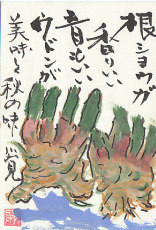 根ショウガ
香りいい
音もいい
ウドンが
美味 秋の味覚